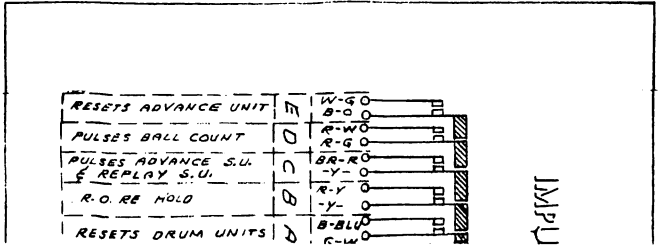 RESETS ADVANCE UNIT E W-G
B-O
PULSES BALL COUNT D R-W
R-G
PULSES ADVANCE S.U. C BR-R
& REPLAY S.U. -Y-
R.O. RE HOLD B R-Y
-Y-
RESETS DRUM UNITS A B-BLU
G-W
IMPU